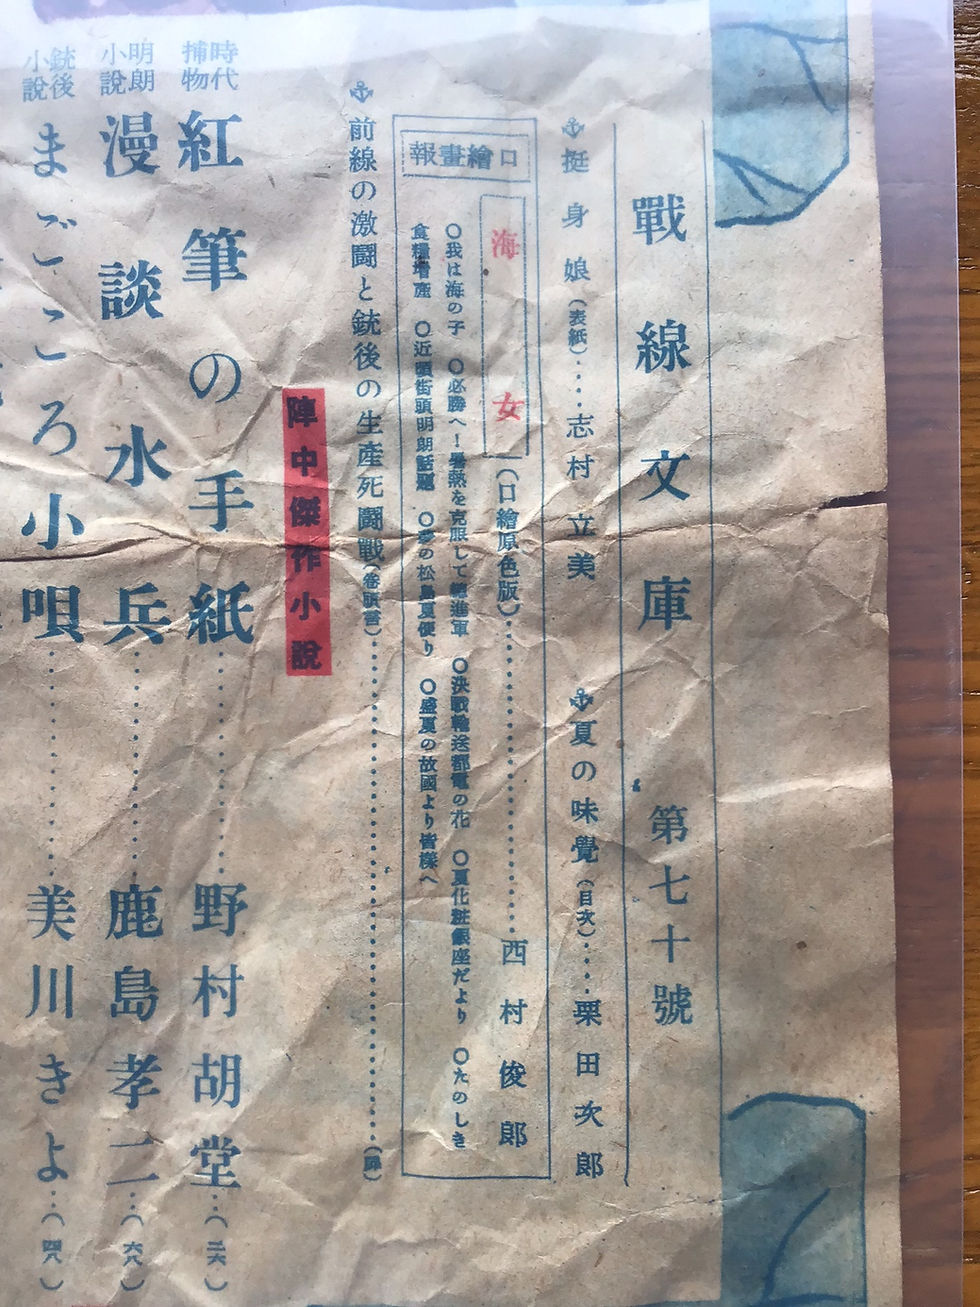 戰線文庫 第七十號
挺身娘（表紙）····志村立美
夏の味覺（目次）·····栗田次郎
口繪畫報
海女（口繪原色版）··············西村俊郎
〇我は海の子 〇必勝へ！暑熱を克服して總進軍 〇決戰輸送都電の花 〇夏化粧銀座だより 〇たのしき
食糧增産 〇近頃街頭明朗話題 〇夢の松島夏便り 〇盛夏の故國より皆樣へ
前線の激鬪と銃後の生産死鬪戰（卷頭言）··············（扉）
陣中傑作小說
時代捕物 紅筆の手紙··········野村胡堂··（二六）
明朗小說 漫談水兵··········鹿島孝二··（六八）
銃後小說 まごころ小唄··········美川きよ··（四八）